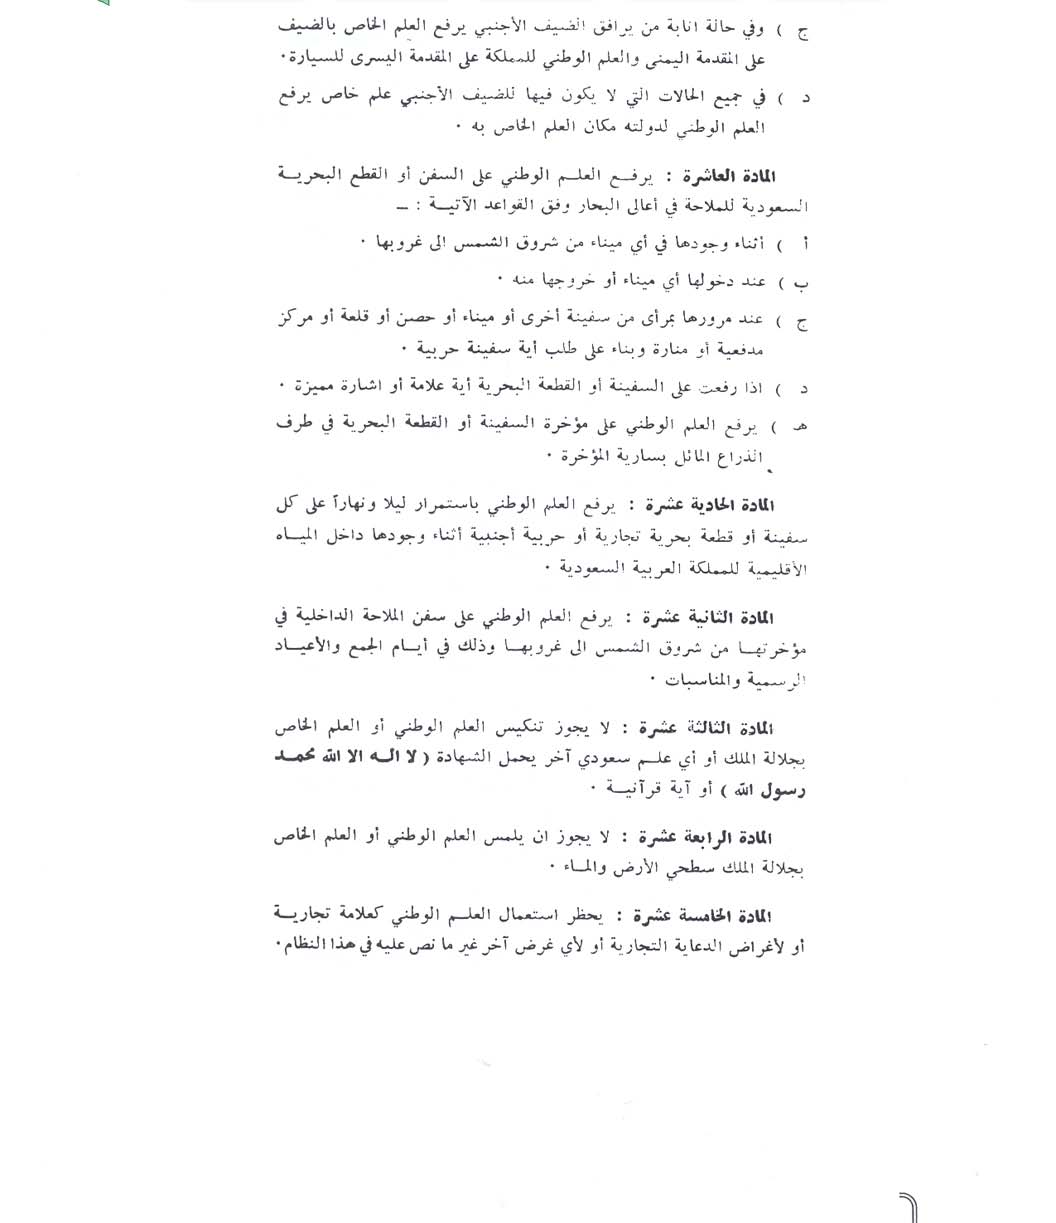 ج ) وفي حالة انابة من يرافق الضيف الأجنبي يرفع العلم الخاص بالضيف
على المقدمة اليمنى والعلم الوطني للمملكة على المقدمة اليسرى للسيارة .
د ) في جميع الحالات التي لا يكون فيها للضيف الأجنبي علم خاص يرفع
العلم الوطني لدولته مكان العلم الخاص به .
المادة العاشرة : يرفع العلم الوطني على السفن أو القطع البحرية
السعودية للملاحة في أعالى البحار وفق القواعد الآتية : ـ
أ ) أثناء وجودها في أي ميناء من شروق الشمس الى غروبها .
ب ) عند دخولها أي ميناء أو خروجها منه .
ج ) عند مرورها بمرأى من سفينة أخرى أو ميناء أو حصن أو قلعة أو مركز
مدفعية أو منارة وبناء على طلب أية سفينة حربية .
د ) اذا رفعت على السفينة أو القطعة البحرية أية علامة أو اشارة مميزة .
هـ ) يرفع العلم الوطني على مؤخرة السفينة أو القطعة البحرية في طرف
الذراع المائل بسارية المؤخرة .
المادة الحادية عشرة : يرفع العلم الوطني باستمرار ليلا ونهاراً على كل
سفينة أو قطعة بحرية تجارية أو حربية أجنبية أثناء وجودها داخل المياه
الأقليمية للمملكة العربية السعودية .
المادة الثانية عشرة : يرفع العلم الوطني على سفن الملاحة الداخلية في
مؤخرتها من شروق الشمس الى غروبها وذلك في أيام الجمع والأعياد
الرسمية والمناسبات .
المادة الثالثة عشرة : لا يجوز تنكيس العلم الوطني أو العلم الخاص
بجلالة الملك أو أي علم سعودي آخر يحمل الشهادة ( لا اله الا الله محمد
رسول الله ) أو آية قرآنية .
المادة الرابعة عشرة : لا يجوز ان يلمس العلم الوطني أو العلم الخاص
بجلالة الملك سطحي الأرض والماء .
المادة الخامسة عشرة : يحظر استعمال العلم الوطني كعلامة تجارية
أو لأغراض الدعاية التجارية أو لأي غرض آخر غير ما نص عليه في هذا النظام .